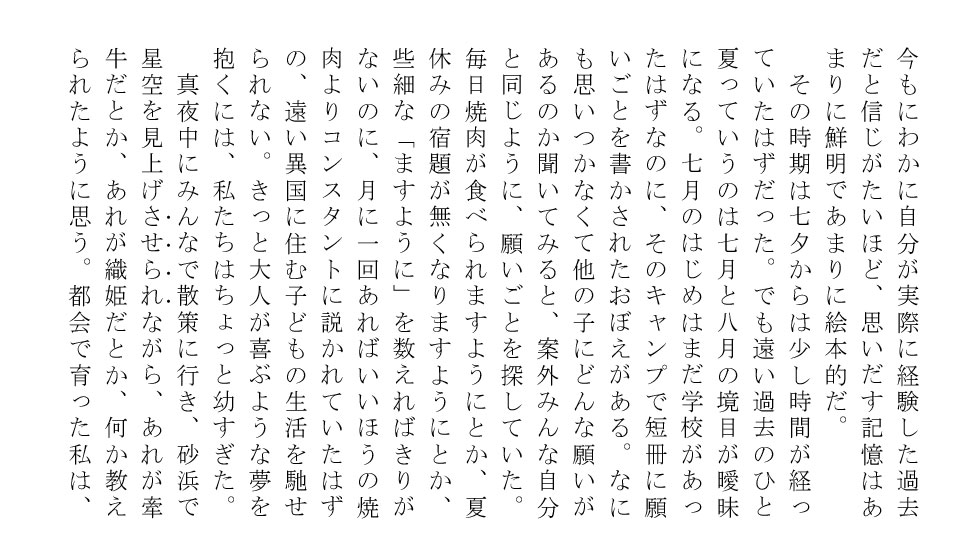 今もにわかに自分が実際に経験した過去
だと信じがたいほど、思いだす記憶はあ
まりに鮮明であまりに絵本的だ。
　その時期は七夕からは少し時間が経っ
ていたはずだった。でも遠い過去のひと
夏っていうのは七月と八月の境目が曖昧
になる。七月のはじめはまだ学校があっ
たはずなのに、そのキャンプで短冊に願
いごとを書かされたおぼえがある。なに
も思いつかなくて他の子にどんな願いが
あるのか聞いてみると、案外みんな自分
と同じように、願いごとを探していた。
毎日焼肉が食べられますようにとか、夏
休みの宿題が無くなりますようにとか、
些細な「ますように」を数えればきりが
ないのに、月に一回あればいいほうの焼
肉よりコンスタントに説かれていたはず
の、遠い異国に住む子どもの生活を馳せ
られない。きっと大人が喜ぶような夢を
抱くには、私たちはちょっと幼すぎた。
　真夜中にみんなで散策に行き、砂浜で
星空を見上げさせられながら、あれが牽
牛だとか、あれが織姫だとか、何か教え
られたように思う。都会で育った私は、